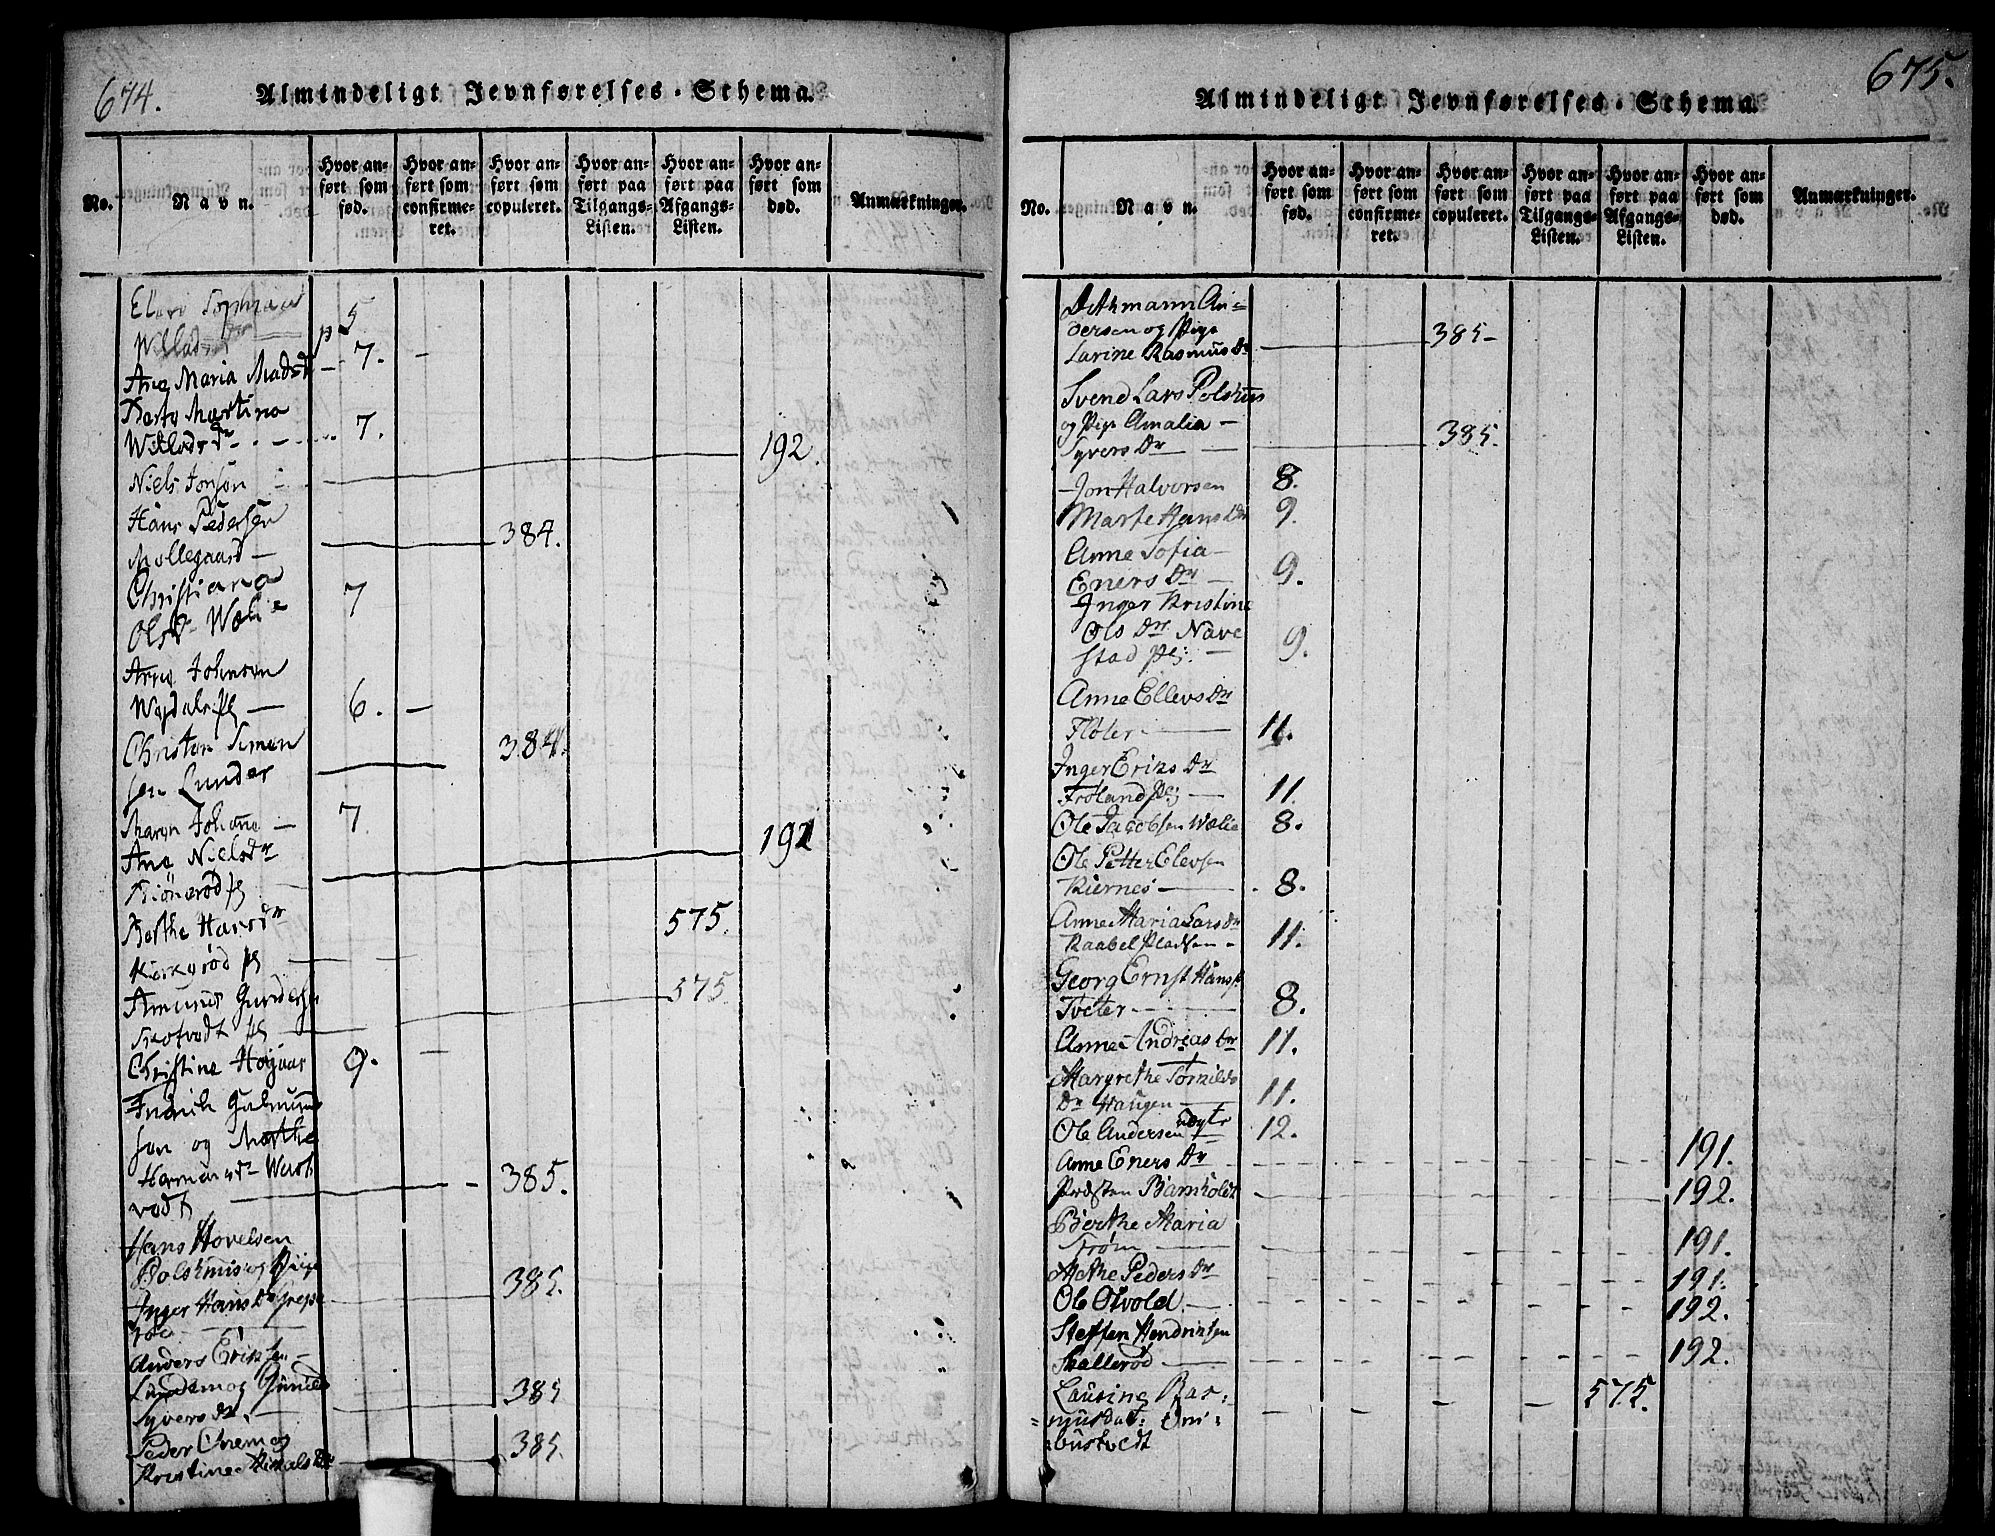 674.
Almindeligt Jevnførelses-Schema.
No.
Navn.
Hvor anført som fød.
Hvor anført som confirmeret.
Hvor anført som copuleret.
Hvor anført paa Tilgangs-Listen.
Hvor anført paa Afgangs-Listen.
Hvor anført som død.
Anmærkninger.
5
Ane Maria Madsd 7.
Martina
7.
Niels Jonsøn 192.
Hans Pedersen
Møllegaard — 384.
Christiana 7
Olsdr
Arne Johnsen
6. —
Christen Simon
sen Lunder 384.
Maren Johanne — 7.
Ane Nielsdr
192
Berthe Hansdr
575.
Amund Gunderse
575.
Christine Højaas 9. —
og Marthe
Hermansdr
vodt 385.
Hans Hovelsen
Bolsknis og Pige
Inger Hans Dr Grepe
rød 385.
Anders Erichsen —
Syversdr. 385
Peder Chrem og
Kristine 385.
675.
Almindeligt Jevnførelses-Schema.
No.
Navn.
Hvor anført som fød.
Hvor anført som confirmeret.
Hvor anført som copuleret.
Hvor anført paa Tilgangs-Listen.
Hvor anført paa Afgangs-Listen.
Hvor anført som død.
Anmærkninger.
Dethmann An-
dersen og Pige
Larine Rasmus Dr 385-
Svend Lars Polskns
og Pige Amalia —
Syvers Dr — 385.
Jon Halvorsen 8.
Marte Hans Dr 9.
Anne Sofia —
Eners Dr — 9.
Inger Kristine
Ols Dr Nave
stad pl: — 9.
Anne Ellevs Dr
Fløter — 11.
Inger Eriks Dr
Frøland pl; — 11.
Ole Jacobsen Wælie 8.
Ole Petter Elevsen
Kiernes — 8.
Anne Maria Lars Dr
Kaabel Pladsen - 11.
Georg Ernst Hans
Tveter — 8.
Anne Andreas Dr 11.
Margrethe Torkilds
Dr Haugen — 11.
Ole Andersen 12.
Anne Eners Dr 191.
Præsten Barnholdt 192.
Berthe Maria
Strøm — 191.
Methe Peders Dr 191.
Ole Otvold. — 192.
Steffen Hendriksen
Skallerød — 192.
Lausine Ras:
musdat: Om:
bustvedt 575.